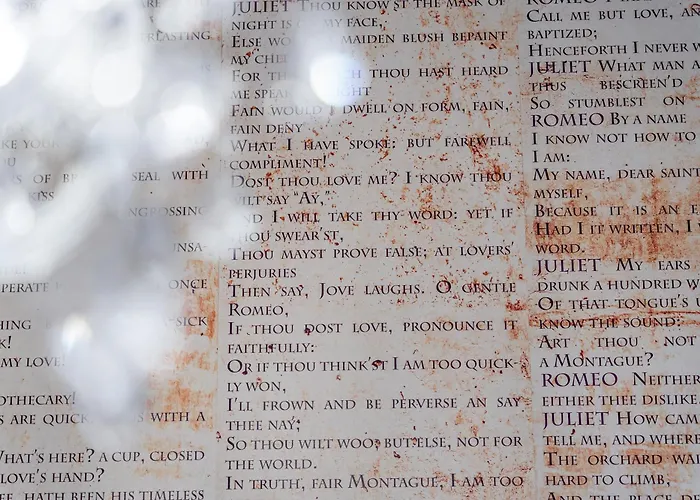 ERLASTING
KE YOUR
S OF
SEAL WITH
KISS
NGROSSING
UNSA-
PERATE
ONCE
HING
-SICK
K!
MY LOVE!
OTHECARY!
S ARE QUICK
WITH A
WHAT'S HERE? A CUP, CLOSED
LOVE'S HAND?
HATH BEEN HIS TIMELESS
JULIET THOU KNOW'ST THE MASK OF
NIGHT IS MY FACE,
ELSE WO MAIDEN BLUSH BEPAINT
MY CHE
FOR TH H THOU HAST HEARD
ME SPEA GHT
FAIN WOULD I DWELL ON FORM, FAIN,
FAIN DENY
WHAT I HAVE SPOKE: BUT FAREWELL
COMPLIMENT!
DOST THOU LOVE ME? I KNOW THOU
WILT SAY "AY,"
AND I WILL TAKE THY WORD: YET IF
THOU SWEAR'ST,
THOU MAYST PROVE FALSE; AT LOVERS'
PERJURIES
THEN SAY, JOVE LAUGHS. O GENTLE
ROMEO,
IF THOU DOST LOVE, PRONOUNCE IT
FAITHFULLY:
OR IF THOU THINK'ST I AM TOO QUICK-
LY WON,
I'LL FROWN AND BE PERVERSE AN SAY
THEE NAY;
SO THOU WILT WOO; BUT ELSE, NOT FOR
THE WORLD.
IN TRUTH, FAIR MONTAGUE, I AM TOO
ROMEO
CALL ME BUT LOVE, AN
BAPTIZED;
HENCEFORTH I NEVER W
JULIET WHAT MAN A
THUS BESCREEN'D
SO STUMBLEST ON
ROMEO BY A NAME
I KNOW NOT HOW TO
I AM:
MY NAME, DEAR SAINT
MYSELF,
BECAUSE IT IS AN E
HAD I IT WRITTEN, I W
WORD.
JULIET MY EARS
DRUNK A HUNDRED W
OF THAT TONGUE'S U
KNOW THE SOUND:
ART THOU NOT
A MONTAGUE?
ROMEO NEITHER
EITHER THEE DISLIKE.
JULIET HOW CAM
TELL ME, AND WHERE
THE ORCHARD WAL
HARD TO CLIMB,
AND THE PLACE D